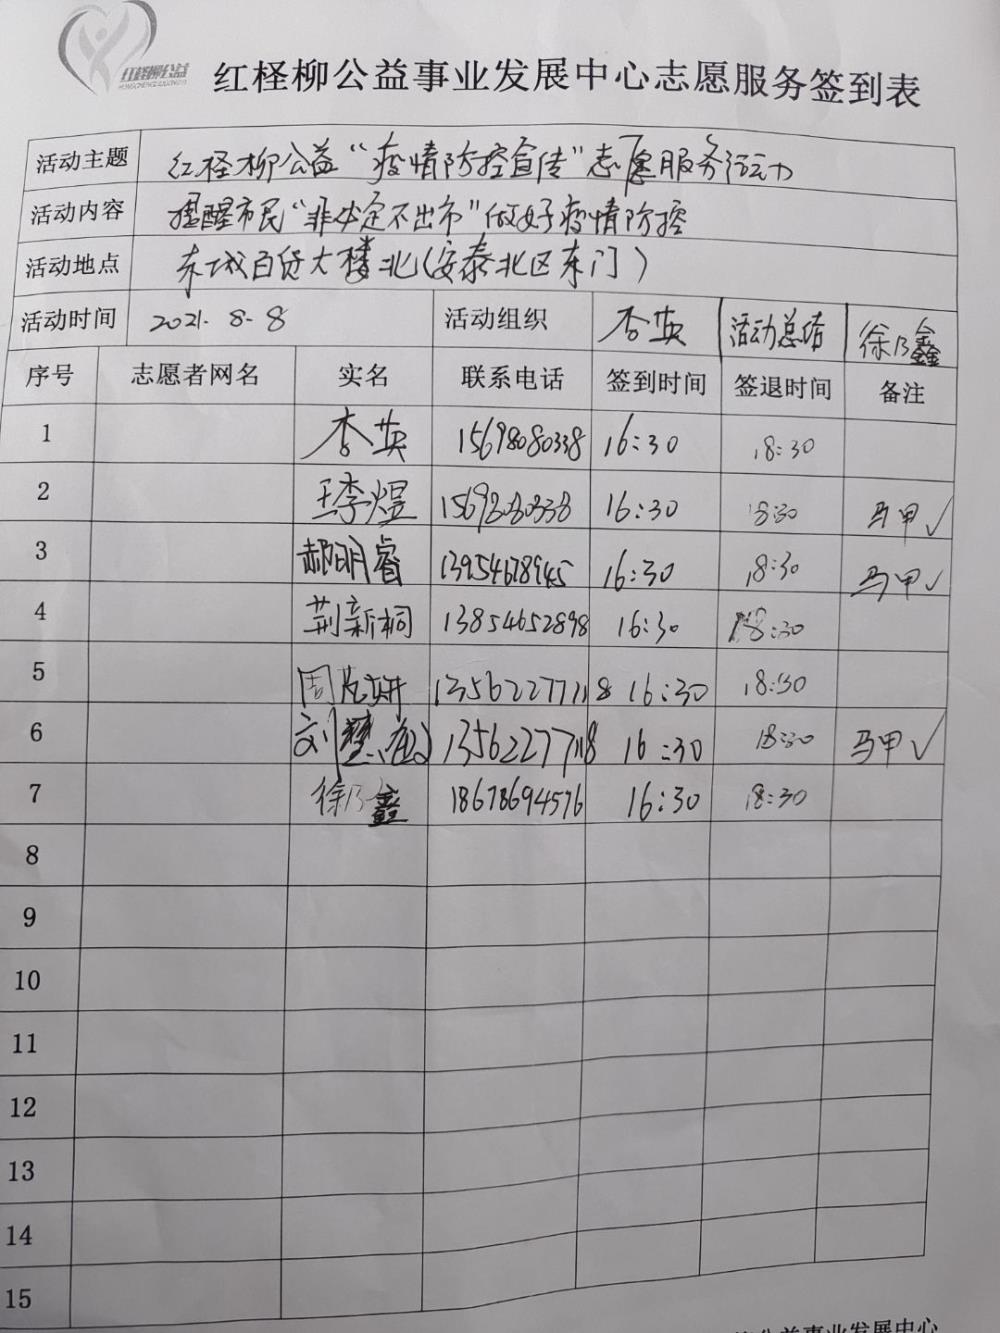 红柽柳公益
红柽柳公益事业发展中心志愿服务签到表
活动主题 红柽柳公益“疫情防控宣传”志愿服务活动
活动内容 提醒市民“非必定不出市”做好疫情防控
活动地点 东城百货大楼北(安泰北区东门)
活动时间 2021.8.8 活动组织 李英 活动总结 徐乃鑫
序号 志愿者网名 实名 联系电话 签到时间 签退时间 备注
1 李英 15698080338 16:30 18:30
2 王李煜 15698080338 16:30 18:30 马甲✓
3 郝明睿 13954678945 16:30 18:30 马甲✓
4 荆新桐 13854652898 16:30 18:30
5 周 妍 13562277118 16:30 18:30
6 刘慧 13562277118 16:30 18:30 马甲✓
7 徐乃鑫 18678694576 16:30 18:30
8
9
10
11
12
13
14
15
公益事业发展中心